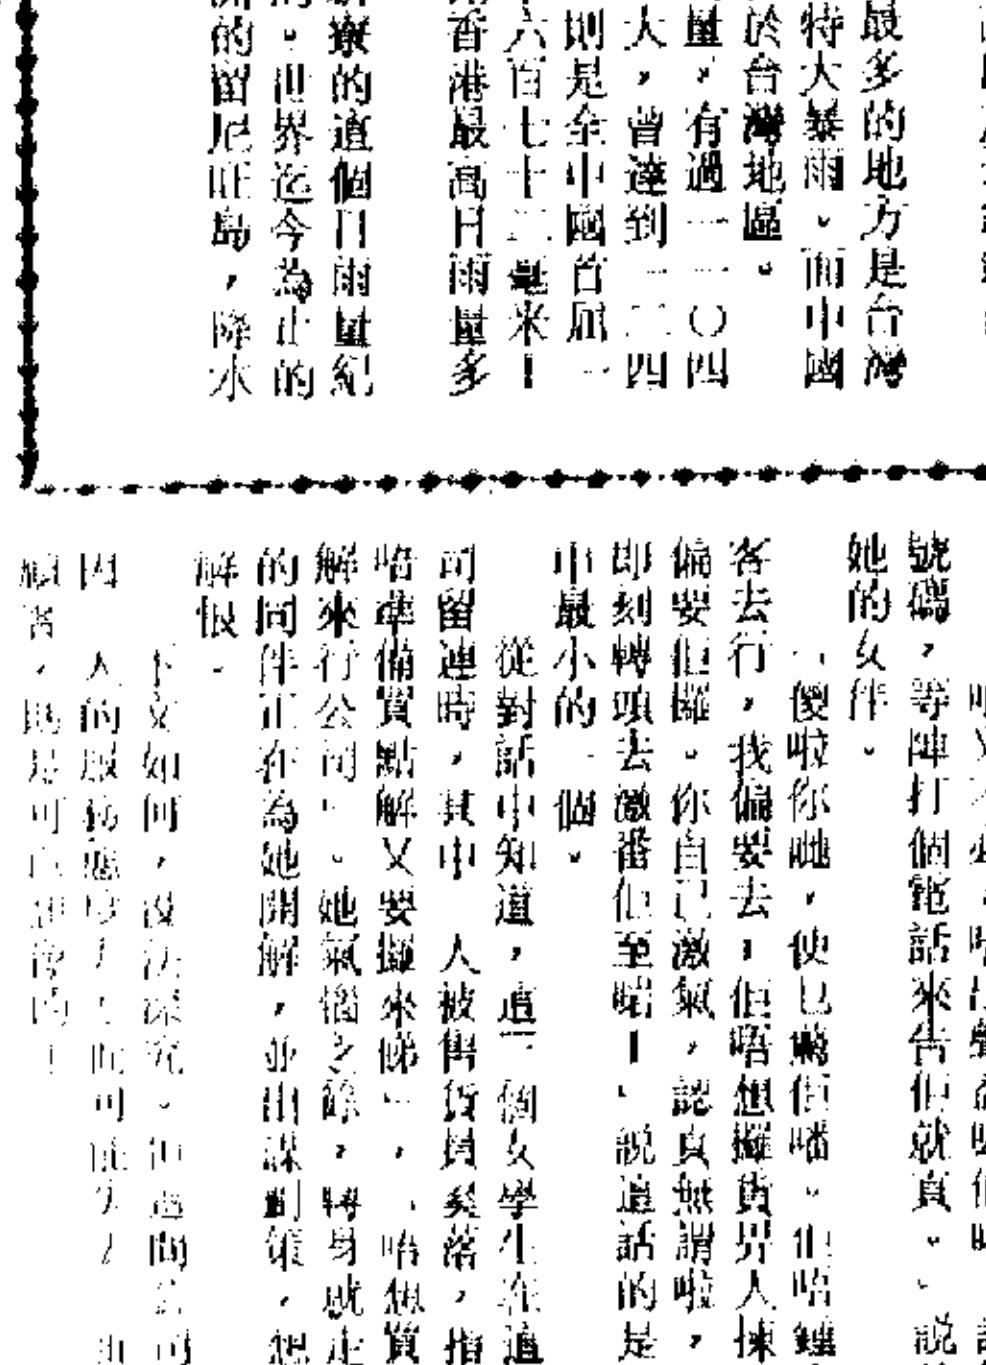 最多的地方是台灣
特大暴雨。而中國
於台灣地區。
量，有過一一〇四
大，曾達到一二四
則是全中國首屈一
六百七十二毫米！
香港最高日雨量多
寮的這個日雨量紀
。世界迄今為止的
的留尼旺島，降水
號碼，等陣打個電話來告佢就真。」說
她的女伴。
「傻啦你哋，使乜嬲佢噃。佢唔
客去行，我偏要去，佢唔想攞貨畀人揀
偏要佢攞。你自己激氣，認真無謂啦，
即刻轉頭去激番佢至啱！」說這話的是
中最小的一個。
從對話中知道，這三個女學生在這
司留連時，其中一人被售貨員奚落，指
唔準備買點解又要攞來睇」，「唔想買
解來行公司」。她氣惱之餘，轉身就走
的同伴正在為她開解，並出謀劃策，想
解恨。
下文如何，沒法深究。但這間公司
人的服務態度
顧客，則是可以想像的！